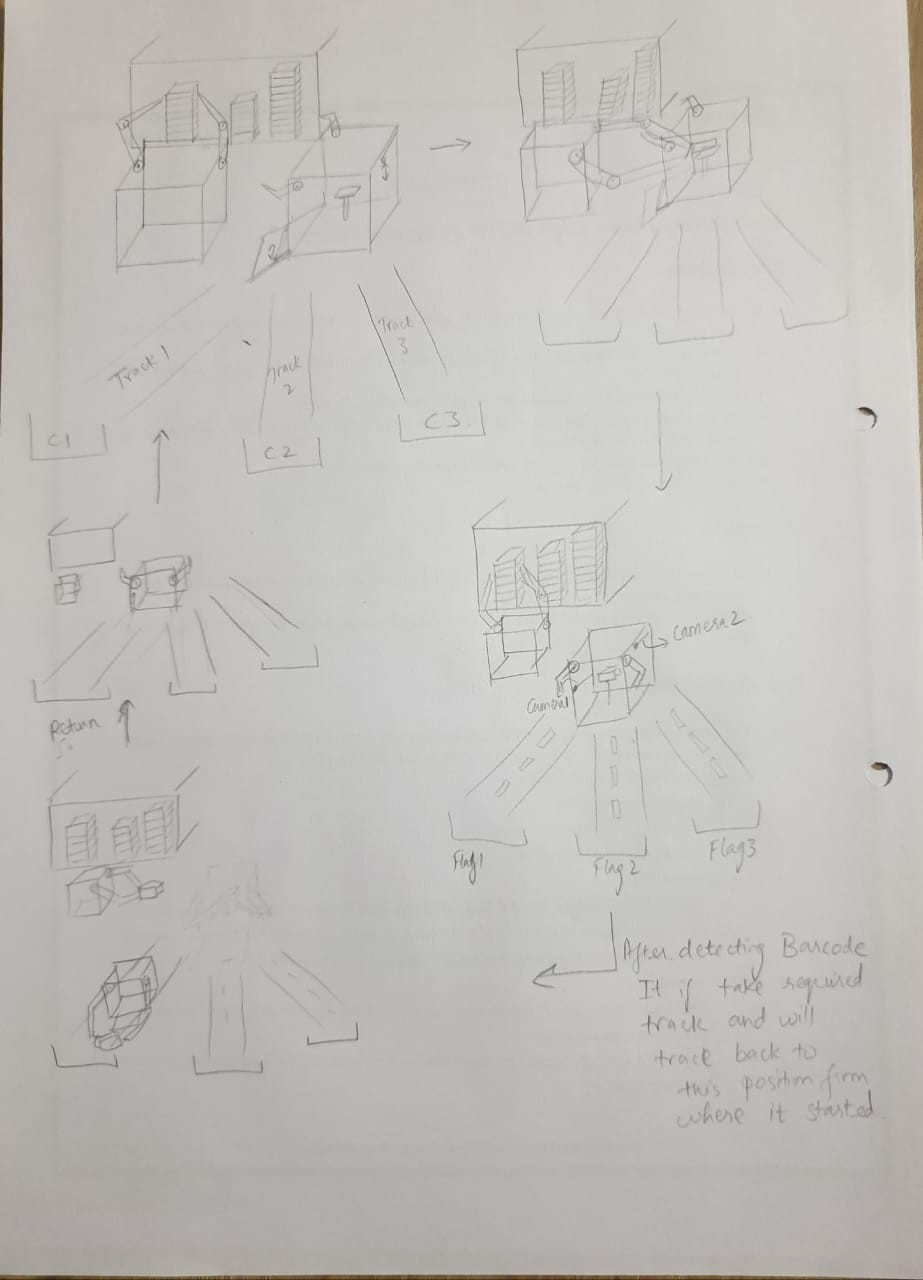 Track 1
Track 2
Track 3
C1
C2
C3
Camera 2
Camera1
Flag1
Flag 2
Flag3
Return
After detecting Barcode
It if take required
track and will
track back to
this position form
where it started.